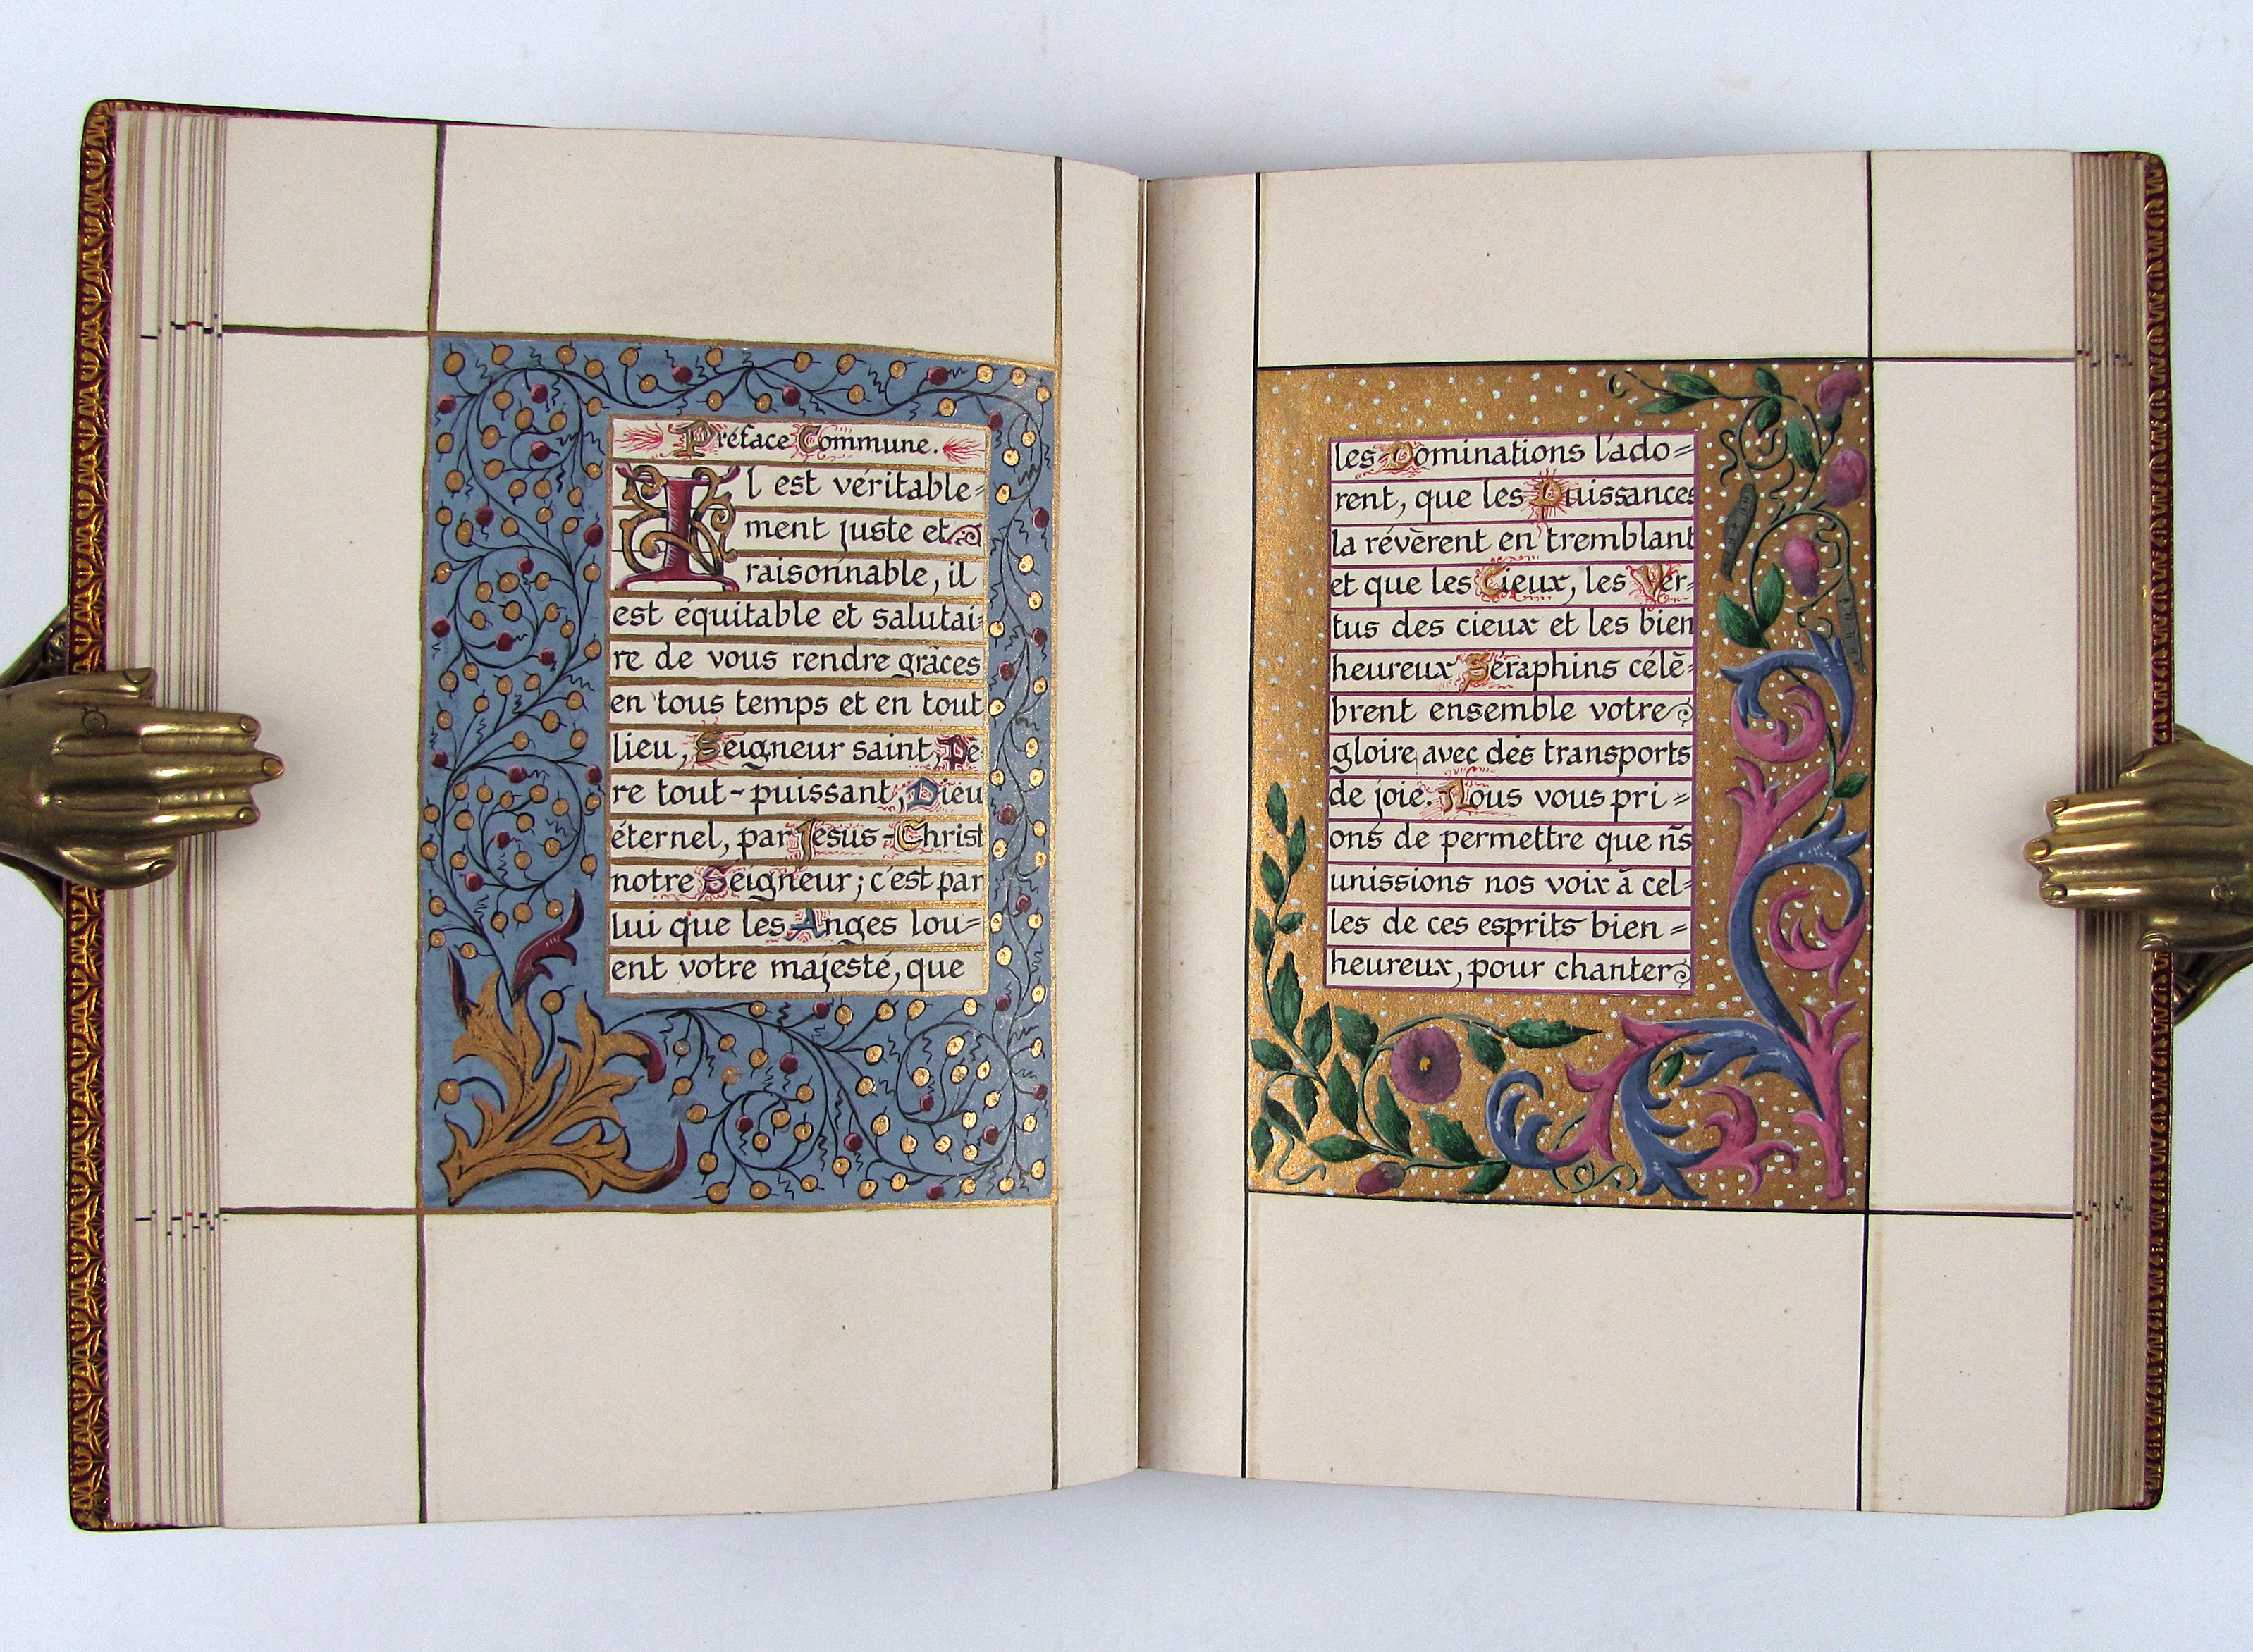 Préface Commune.
Il est véritable=
ment juste et
raisonnable, il
est équitable et salutai=
re de vous rendre grâces
en tous temps et en tout
lieu, Seigneur saint, Pè
re tout-puissant, Dieu
éternel, par Jésus-Christ
notre Seigneur; c'est par
lui que les Anges lou=
ent votre majesté, que
les Dominations l'ado=
rent, que les Puissances
la révèrent en tremblant
et que les Cieux, les Ver=
tus des cieux et les bien
heureux Séraphins célè=
brent ensemble votre
gloire avec des transports
de joie. Nous vous pri=
ons de permettre que n̄s
unissions nos voix à cel=
les de ces esprits bien=
heureux, pour chanter